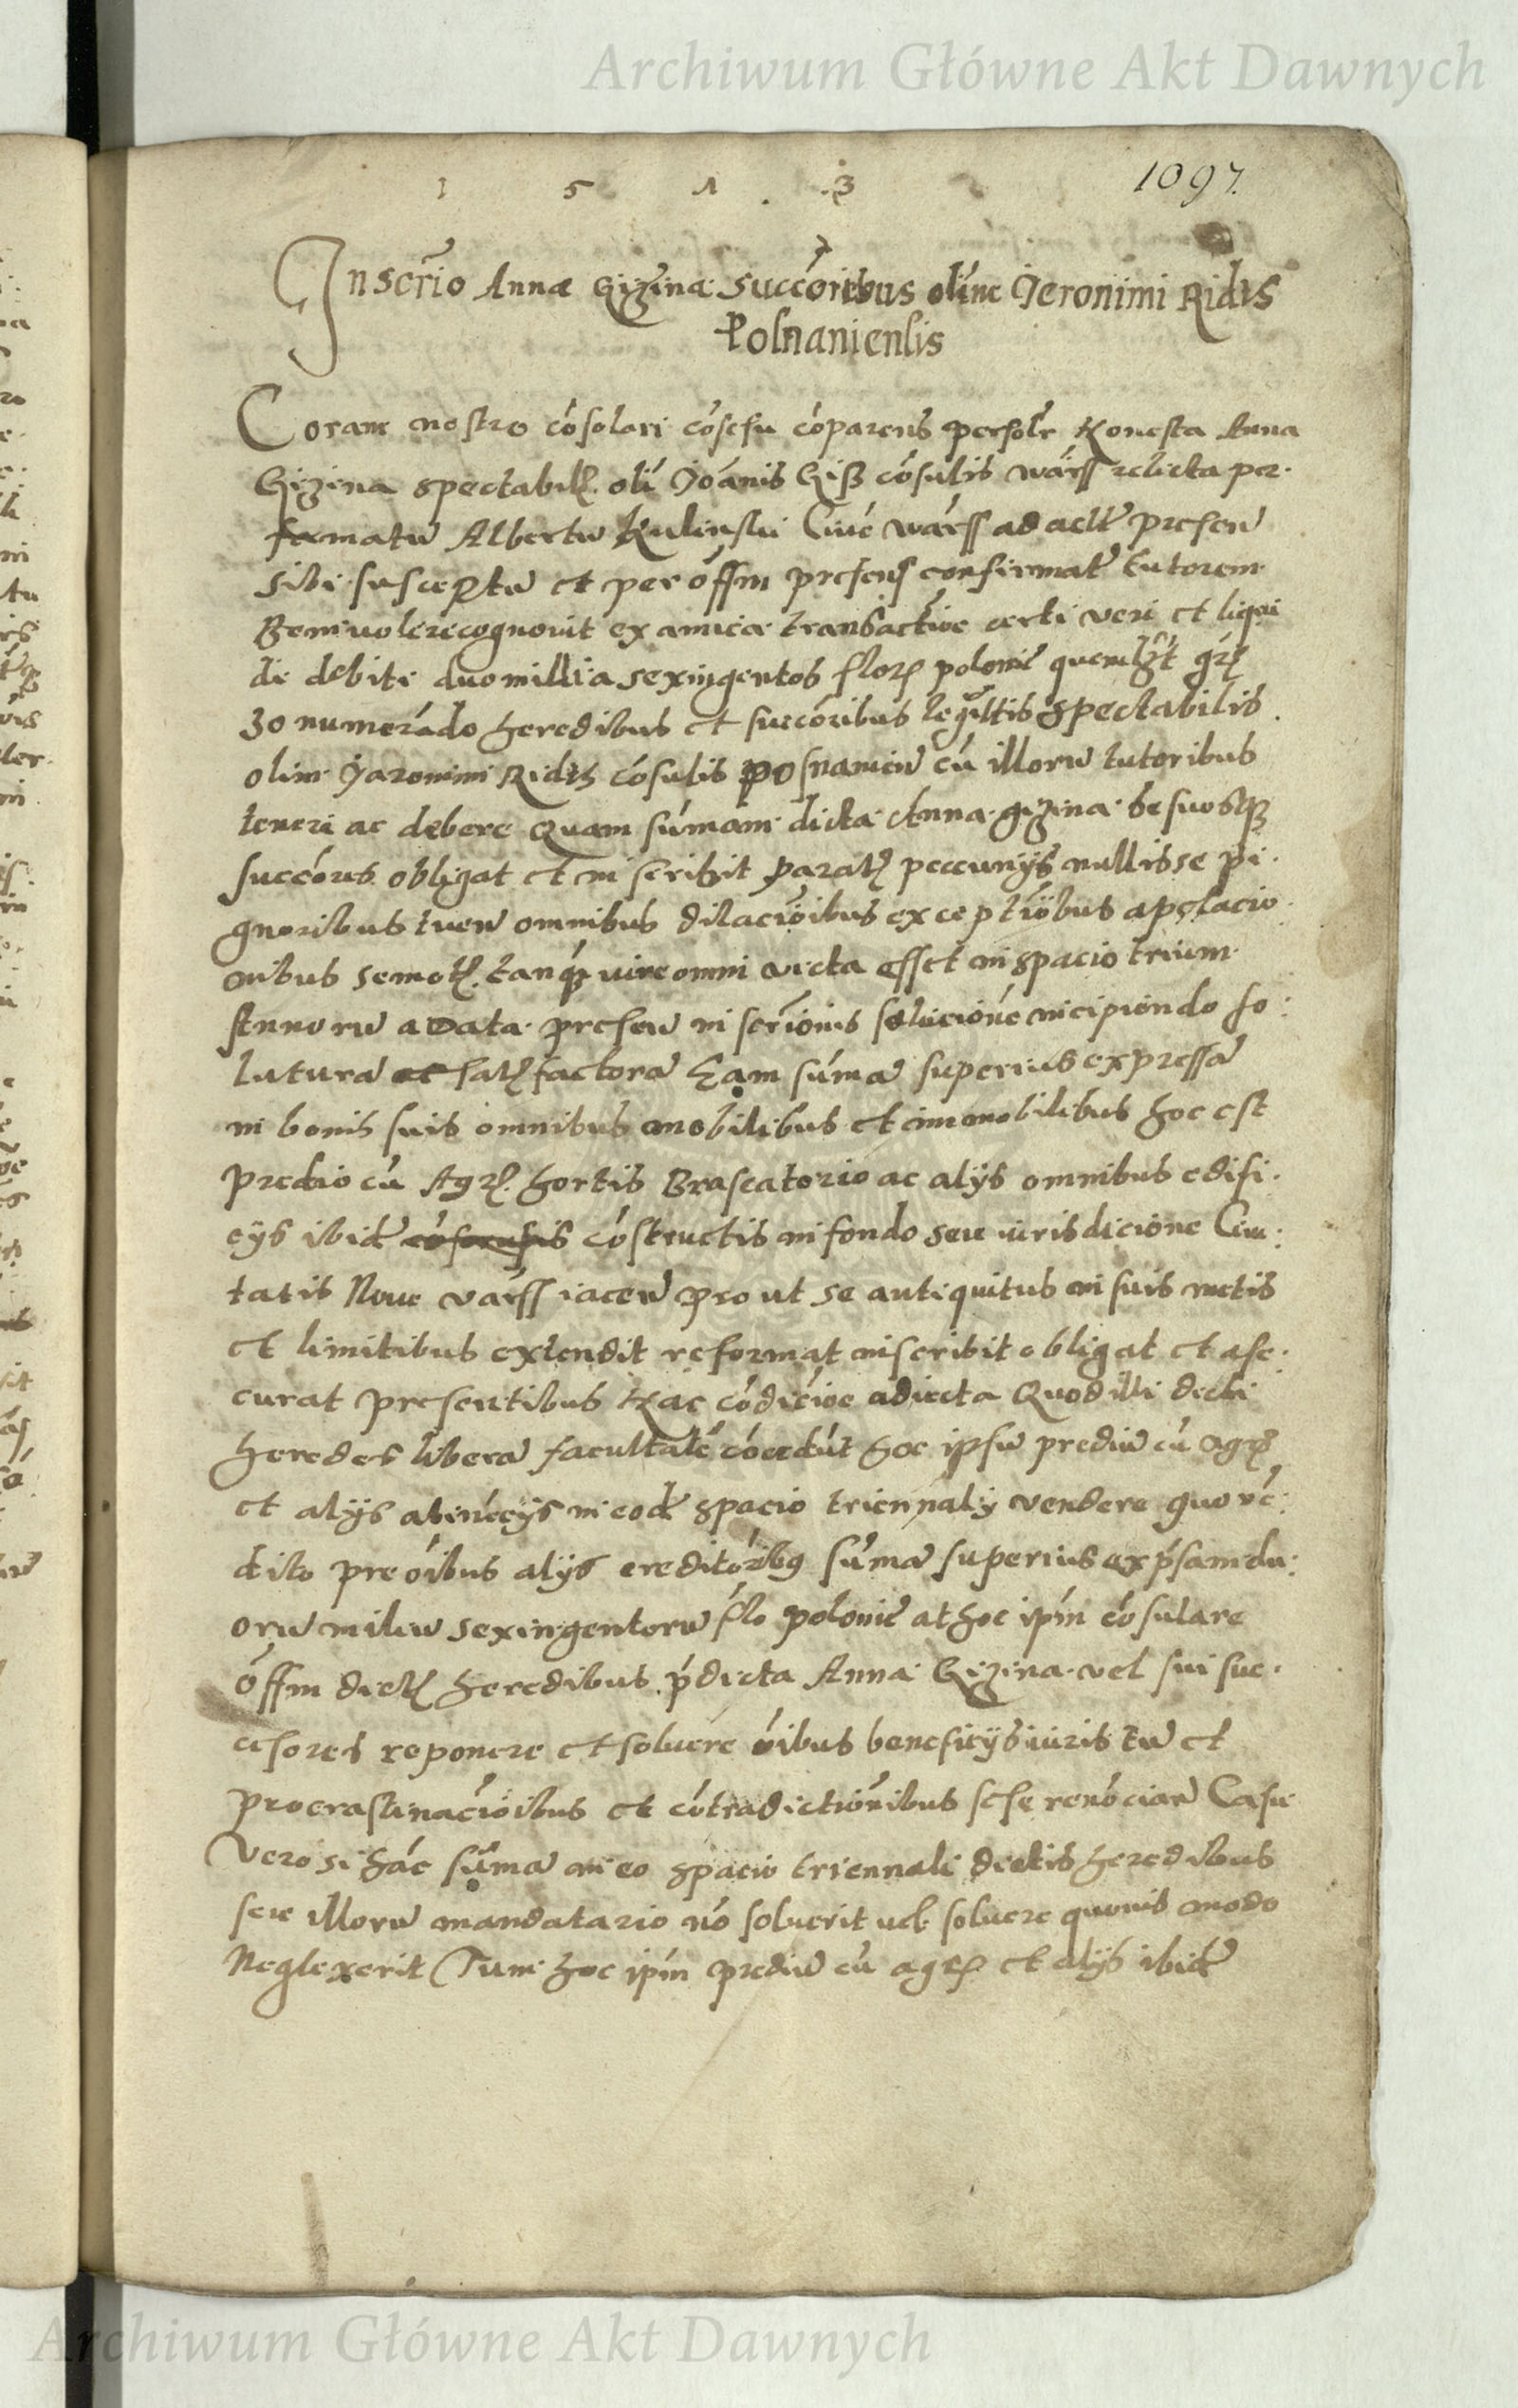 Archiwum Główne Akt Dawnych
1 5 1 3
1097.
Inscrio Annæ Gizina succoribus olim Jeronimi Ridts
Posnaniensis
Coram nostro cósolari cósesu cóparens persolr Honesta Anna
Gizina spectabil. oli Joánis Giß cósulis wárss relicta per.
famatū Albertū Kulinski Civé wárss ad actū presen
sibi susceptū et per offm presens confirmatū tutorem
Benivole recognovit ex amica transactióe certi veri et liqui
di debiti duo millia sexingentos flor polonic quemlzt grz
30 numerádo heredibus et succóribus legittis spectabilis
olim Jaronimi Ridts cósulis posnanien cú illorū tutoribus
teneri ac debere Quam súmam dicta Anna gizina se suosque
succóres obligat et inscribit paratz peccunys nullisse pi.
gnoribus tuen omnibus dilacióibus exceptióbus apelacio
nibus semotz tanqz iure omni victa esset in spacio trium
Annorū a data presen inscriónis solucióne incipiendo so:
luturā et satzfactorā Eam súmā superius expressā
in bonis suis omnibus mobilibus et immobilibus hoc est
predio cú Agr. hortis Brascatorio ac alys omnibus edifi.
cys ibid cóstructis in fondo seu iurisdicione Civi:
tatis Nove várss iacen pro ut se antiquitus in suis metis
et limitibus extendit reformat inscribit obligat et ase.
curat presentibus Hac códicióe adiecta Quod illi dicti
heredes liberā facultaté cócedút hoc ipsū prediū cú agr
et alys atinécys in eod spacio triennaly vendere quo vé:
dito pre óibus alys creditóribq súmā superius expsam du:
orū miliū sexingentorū flo polonic at hoc ipm cósulare
offm dictz heredibus pdicta Anna Gizina vel sui suc.
cesores reponere et solvere óibus beneficys iuris tū et
procrastinacióibus et cótradictiónibus sese renóciaū Casu
Vero si hác súmā in eo spacio triennali dictis heredibus
seu illorū mandatario nó solverit vel solvere quovis modo
Neglexerit Tum hoc ipm prediū cú agr et alys ibid
Archiwum Główne Akt Dawnych